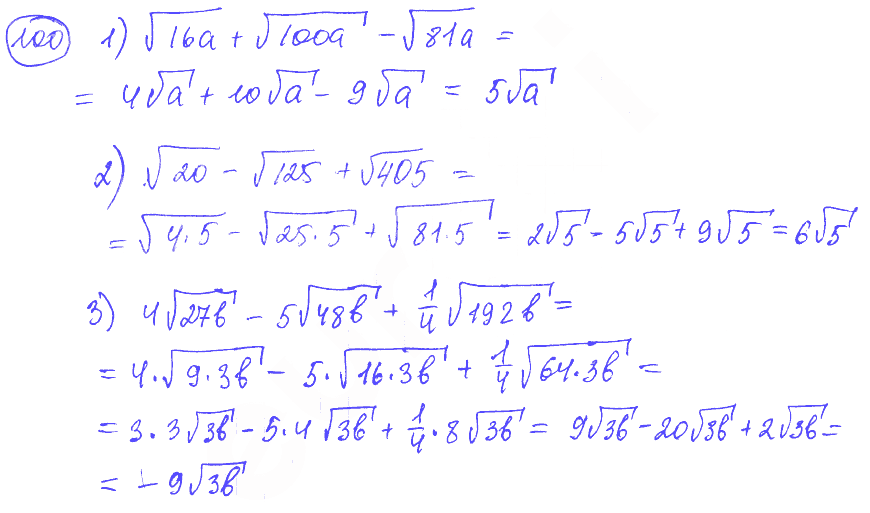 100 1) √16a + √100a - √81a =
= 4√a + 10√a - 9√a = 5√a
2) √20 - √125 + √405 =
= √4·5 - √25·5 + √81·5 = 2√5 - 5√5 + 9√5 = 6√5
3) 4√27b - 5√48b + 1/4√192b =
= 4·√9·3b - 5·√16·3b + 1/4√64·3b =
= 3·3√3b - 5·4√3b + 1/4·8√3b = 9√3b - 20√3b + 2√3b =
= - 9√3b